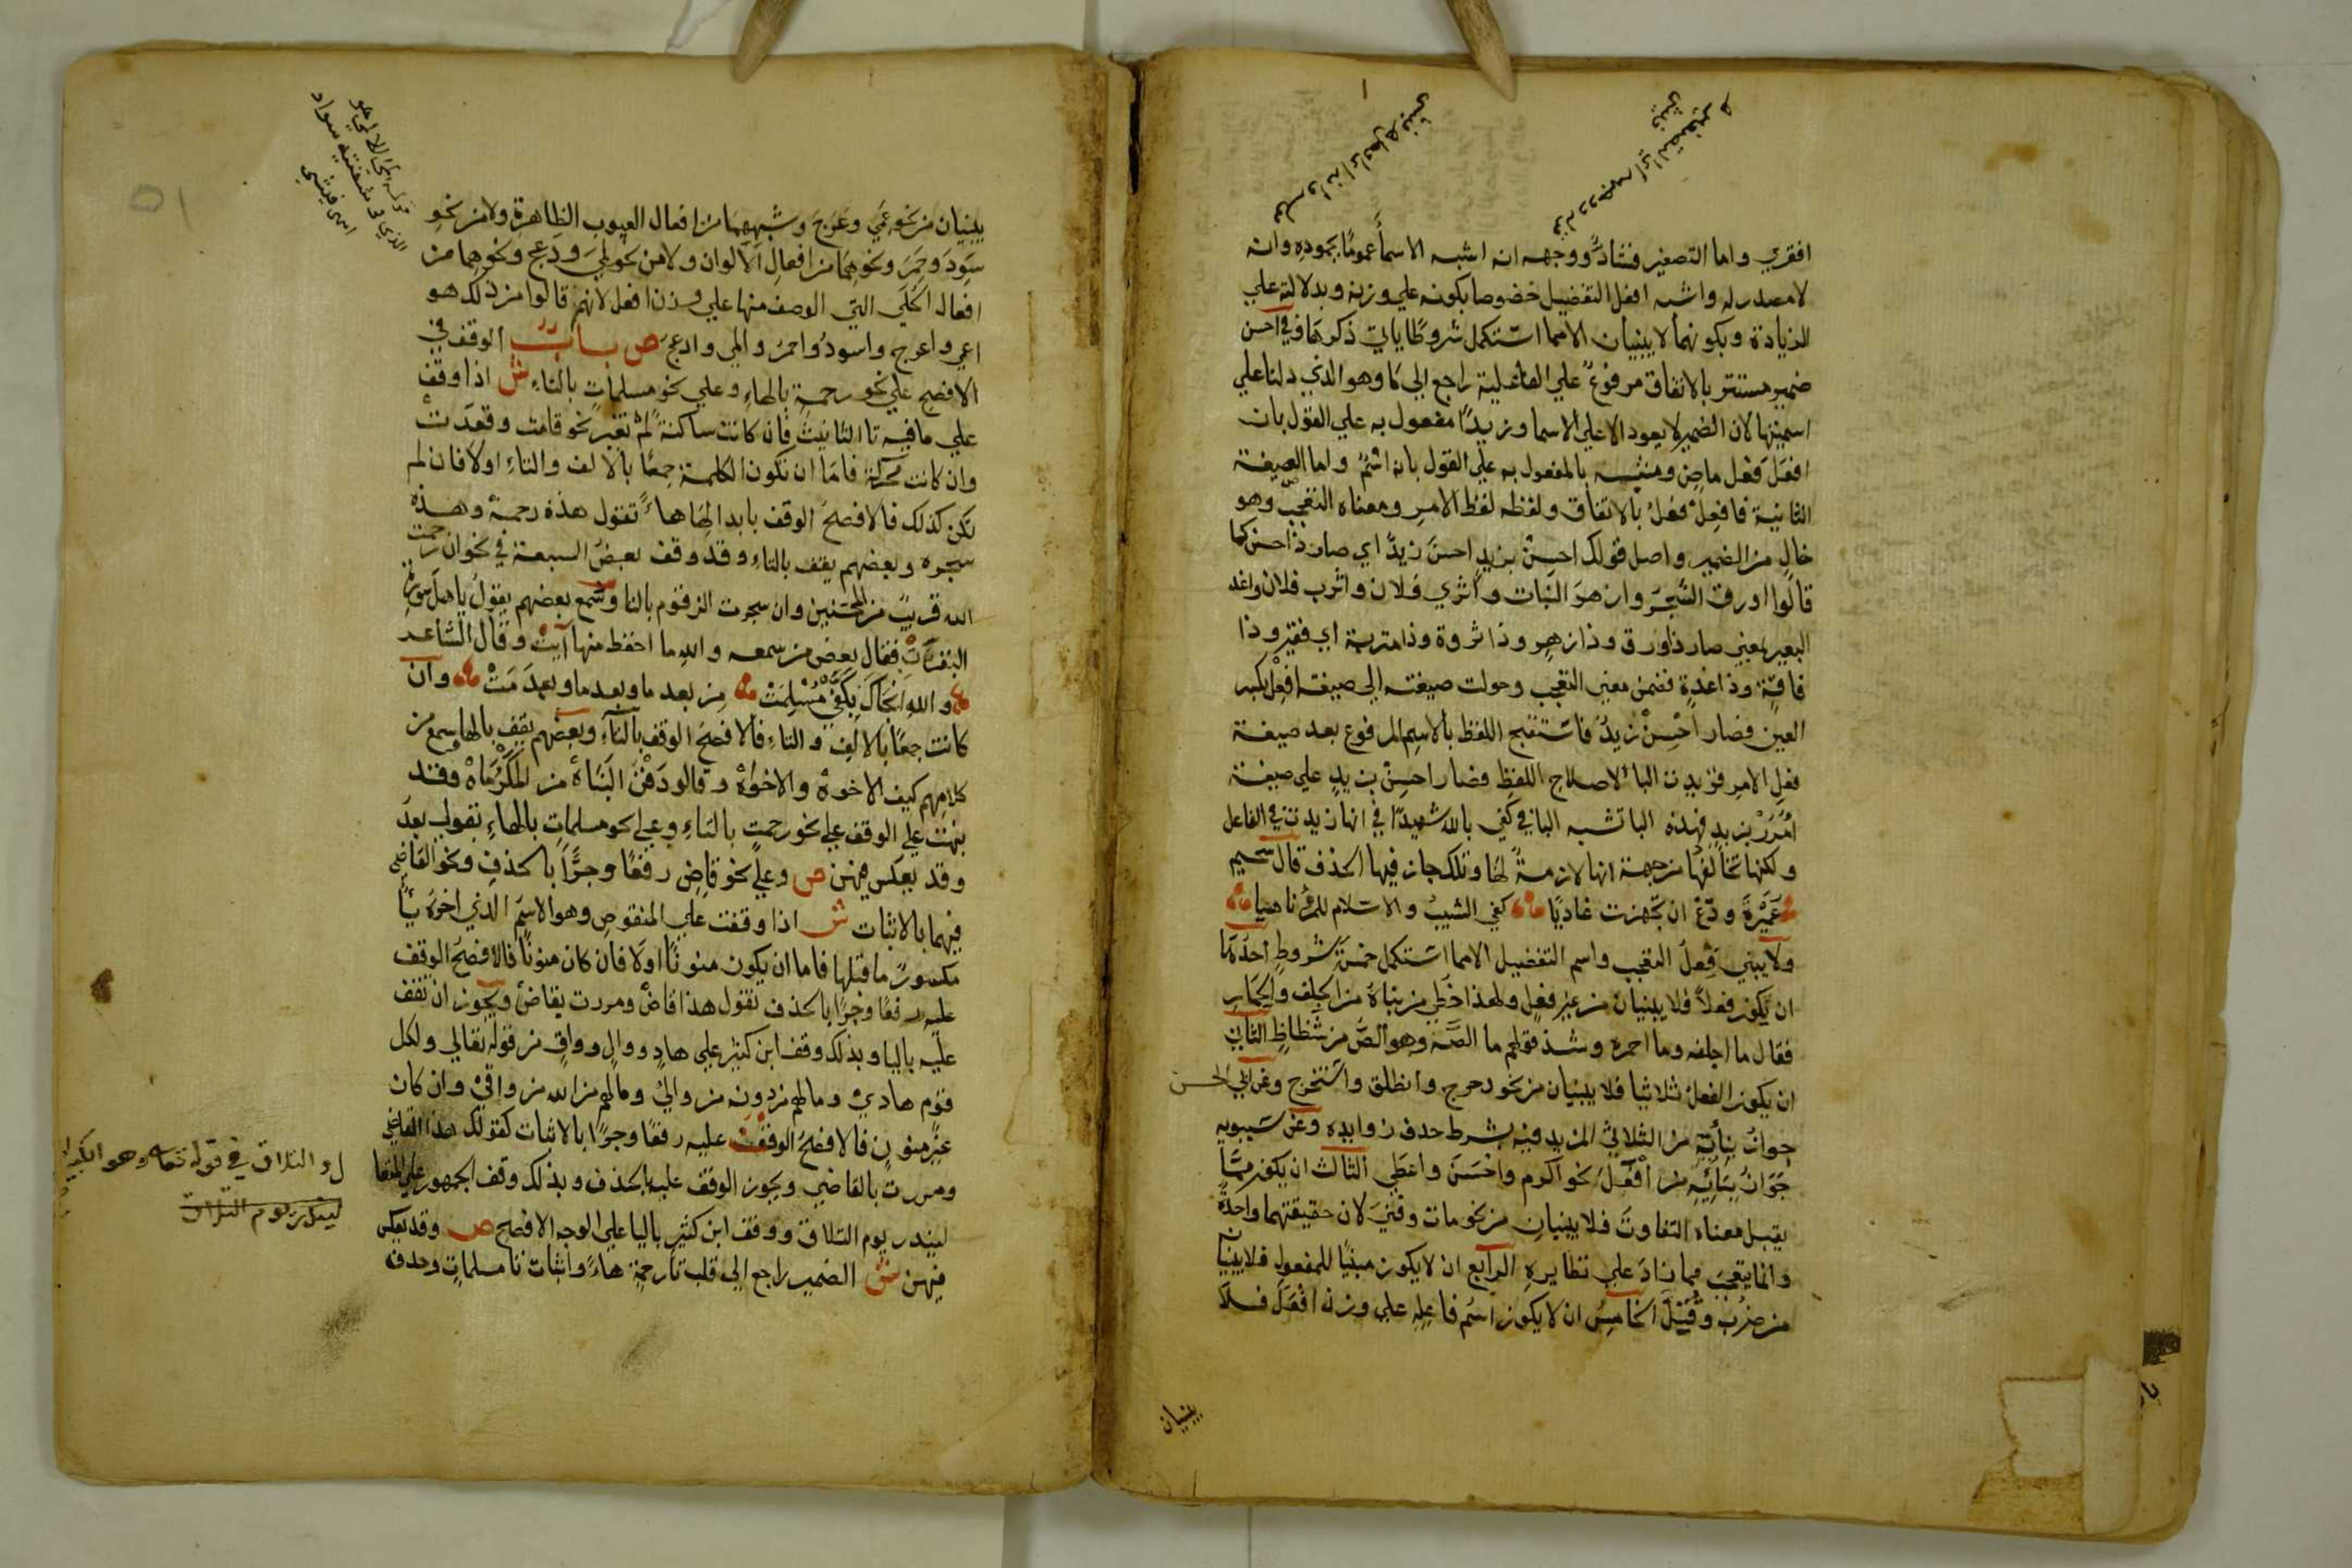 افقري واما التصغير فشاذ ووجهه انه اشبه الاسما عموما بجموده وانه
لا مصدر له واشبه افعل التفضيل خصوصا بكونه علي وزنه وبدلالته علي
الزيادة وبكونهما لا يبنيان الا مما استكمل شروطا ياتي ذكرها وفي احسن
ضمير مستتر بالاتفاق مرفوع علي الفاعلية راجع الي ما وهو الذي دلنا علي
اسميتها لان الضمير لا يعود الا علي الاسما وزيدا مفعول به علي القول بان
افعل فعل ماض ومشبه بالمفعول به علي القول بانه اسم واما الصيغة
الثانية فافعل فعل بالاتفاق ولفظه لفظ الامر ومعناه التعجب وهو
خال من الضمير واصل قولك احسن بزيد احسن زيد اي صار ذا حسن كما
قالوا اورق الشجر وازهر النبات واثري فلان واترب فلان واغد
البعير بمعني صار ذا ورق وذا زهر وذا ثروة وذا متربة اي فقر وذا
فاقة وذا غدة فضمن معني التعجب وحولت صيغته الي صيغة افعل بكسر
العين فصار احسن زيد فاستقبح اللفظ بالاسم المرفوع بعد صيغة
فعل الامر فزيدت الباء لاصلاح اللفظ فصار احسن بزيد علي صيغة
امرر بزيد فهذه الباتشبه البا في كفي بالله شهيدا في انها زيدت في الفاعل
ولكنها تخالفها من جهة انها لازمة لها وتلك جاز فيها الحذف قال سحيم
عميرة ودع ان تجهزت غاديا كفي الشيب والاسلام للمرء ناهيا
ولا يبني فعل التعجب واسم التفضيل الا مما استكمل خمسة شروط احدها
ان يكون فعلا فلا يبنيان من غير فعل ولهذا خطي من بناه من الجلف والحمار
فقال ما اجلفه وما احمره وشذ قولهم ما الصه وهو الص من شظاظ الثاني
ان يكون الفعل ثلاثيا فلا يبنيان من نحو دحرج وانطلق واستخرج وعن ابي الحسن
جواز بنائه من الثلاثي المزيد فيه بشرط حذف زوايده وعن سيبويه
جواز بنائه من افعل نحو اكرم واحسن واعطي الثالث ان يكون مما
يقبل معناه التفاوت فلا يبنيان من نحو مات وفني لان حقيقتهما واحدة
وانما يتعجب مما زاد علي نظايره الرابع ان لا يكون مبنيا للمفعول فلا يبنيان
من ضرب وقتل الخامس ان لا يكون اسم فاعله علي وزن افعل فلا
يبنيان
يبنيان من نحو عمي وعرج وشبههما من افعال العيوب الظاهرة ولا من نحو
سود وحمر ونحوهما من افعال الالوان ولا من نحو لمي ودعج ونحوهما من
افعال الحلي التي الوصف منها علي وزن افعل لانهم قالوا من ذلك هو
اعمي واعرج واسود واحمر والمي وادعج ص باب الوقف في
الافصح علي نحو رحمة بالهاء وعلي نحو مسلمات بالتاء ش اذا وقف
علي ما فيه تا التانيث فان كانت ساكنة لم تغير نحو قامت وقعدت
وان كانت محركة فاما ان تكون الكلمة جمعا بالالف والتاء اولا فان لم
تكن كذلك فالافصح الوقف بابدالها هاء تقول هذه رحمة وهذه
شجره وبعضهم يقف بالتاء وقد وقف بعض السبعة في نحو ان رحمت
الله قريب من المحسنين وان شجرت الزقوم بالتا وسمع بعضهم يقول يا اهل سورة
البقرت فقال بعض من سمعه والله ما احفظ منها آيت وقال الشاعر
والله انجاك بكفي مسلمت من بعد ما وبعد ما وبعد مت وان
كانت جمعا بالالف والتاء فالافصح الوقف بالتاء وبعضهم يقف بالها وسمع من
كلامهم كيف الاخوه والاخواه وقالوا دفن البناه من المكرماه وقد
نبهت علي الوقف علي نحو رحمت بالتاء وعلي نحو مسلمات بالهاء بقولي بعد
وقد يعكس فيهن ص وعلي نحو قاض رفعا وجرا بالحذف ونحو القاضي
فيهما بالاثبات ش اذا وقفت علي المنقوص وهو الاسم الذي اخره يا
مكسور ما قبلها فاما ان يكون منونا اولا فان كان منونا فالافصح الوقف
عليه رفعا وجرا بالحذف تقول هذا قاض ومررت بقاض ويجوز ان تقف
عليه باليا وبذلك وقف ابن كثير علي هاد ووال وواق من قوله تعالي ولكل
قوم هادي وما لهم من دونه من والي وما لهم من الله من واقي وان كان
غير منون فالافصح الوقف عليه رفعا وجرا بالاثبات كقولك هذا القاضي
ومررت بالقاضي ويجوز الوقف عليه بالحذف وبذلك وقف الجمهور علي المتعا
لينذر يوم التلاق ووقف ابن كثير باليا علي الوجه الافصح ص وقد يعكس
فيهن ش الضمير راجع الي قلب تا رحمة هاء واثبات تا مسلمات وحذف
والتلاق في قوله تعالى وهو الكبير
لينذر يوم التلاق